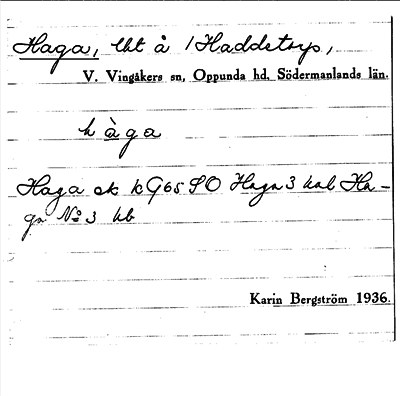 Haga, lht å /Haddetorp,
V. Vingåkers sn, Oppunda hd, Södermanlands län.
hàga
Haga ek kG65 SO Haga 3 kal Ha-
ga No 3 hb
Karin Bergström 1936.